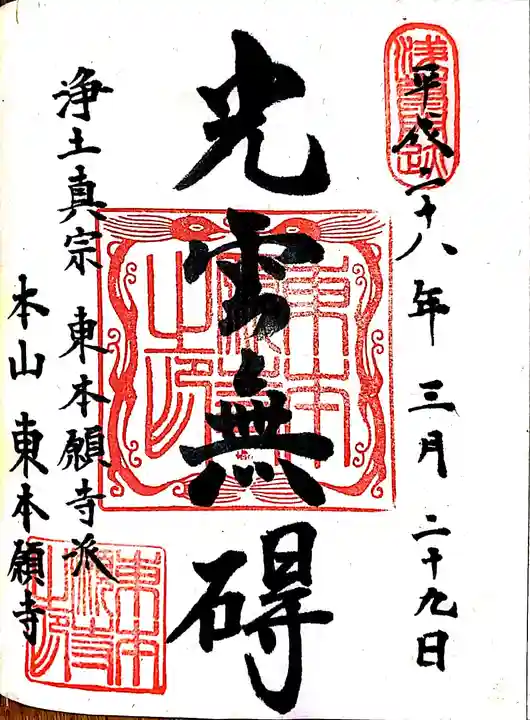 平成二十八年三月二十九日
光雲無碍
浄土真宗 東本願寺派
本山 東本願寺
東本願寺之印
東本願寺之印